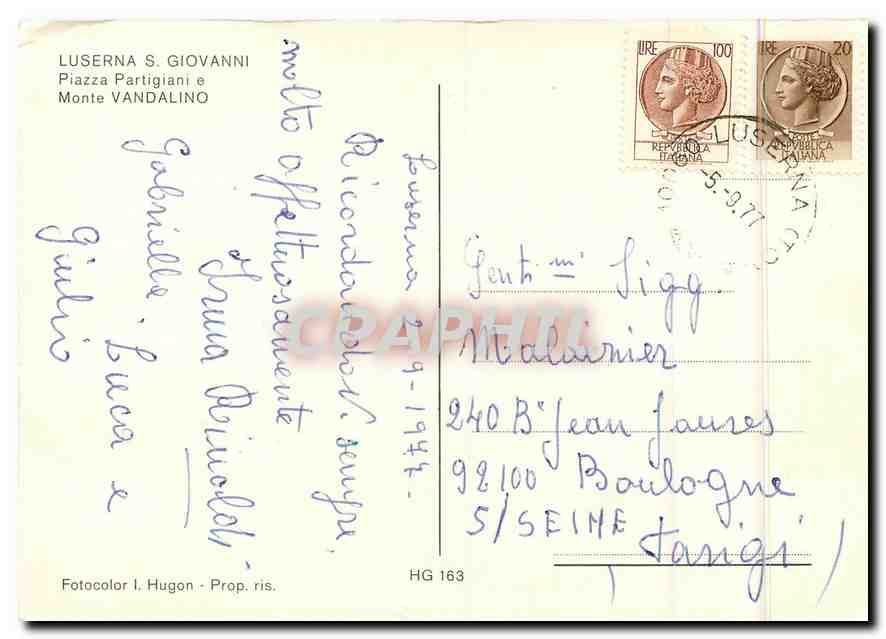 LUSERNA S. GIOVANNI
Piazza Partigiani e
Monte VANDALINO
LIRE 100
REPVBBLICA
ITALIANA
LIRE 20
POSTE
REPVBBLICA
ITALIANA
LUSERNA (TO)
-5.-9.77
Luserna 2-9-1977-
Ricordandovi sempre,
molto affettuosamente
Irma Rinaldi
Gabriella, Luca e
Giulio
Gent.mi Sigg.
Malainier
240 Bd Jean Jaures
92100 Boulogne
S/SEINE
(Parigi)
CPARHTL
Fotocolor I. Hugon - Prop. ris.
HG 163